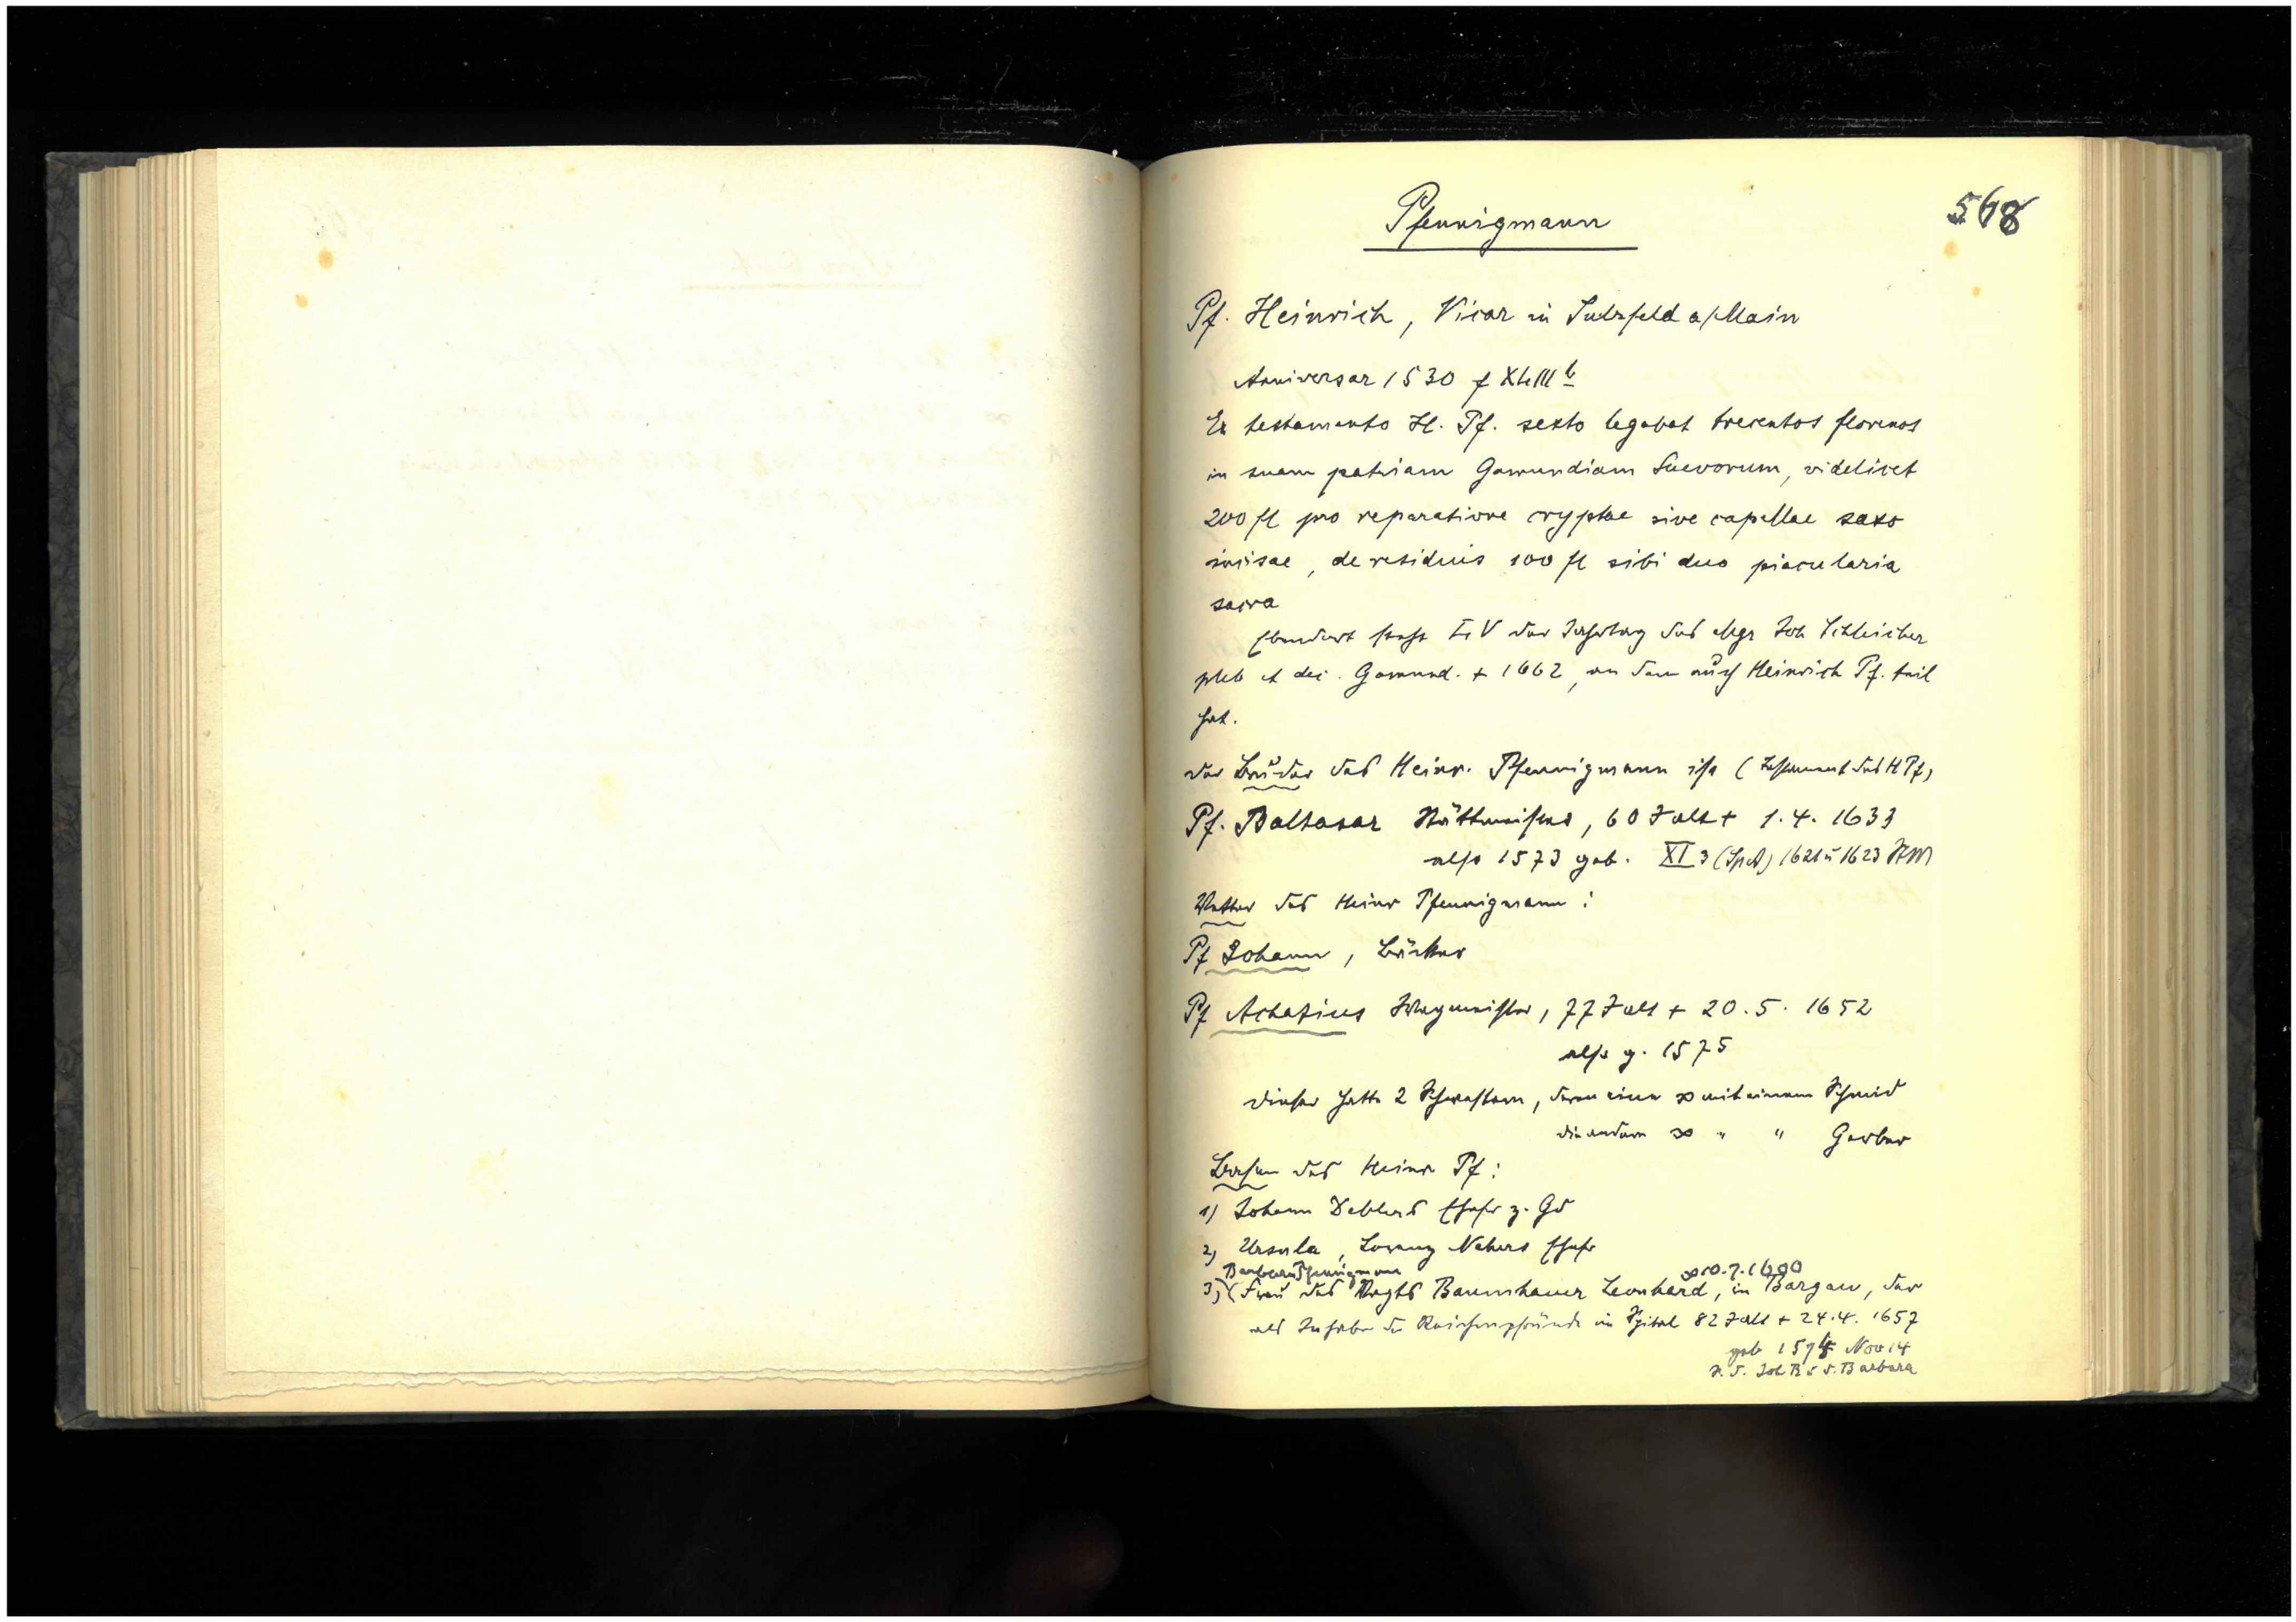 Pfennigmann
568
Pf. Heinrich, Vicar in Sulzfeld a/Main
Anniversar 1530 f XLIII b
Ex testamento H. Pf. sexto legabat trecentos florenos
in suam patriam Gamundiam Suevorum, videlicet
200 fl pro reparatione cryptae sive capellae saxo
incisae, de residuis 100 fl sibi duo piacularia
sacra
Ebendort steht IV der Jahrtag des Mgr Joh Schleicher
pleb et dec. Gamund. + 1662, an dem auch Heinrich Pf. teil
hat.
der Bruder des Heinr. Pfennigmann ist (Testament des H Pf)
Pf. Baltasar Stättmeister, 60 J alt + 1.4. 1633
also 1573 geb. XI 3 (SpA) 1621 u 1623 StM
Vetter des Heinr Pfennigmann:
Pf Johann, Bäcker
Pf Achatius, 77 J alt + 20.5. 1652
also g. 1575
dieser hatte 2 Schwestern, deren eine ∞ mit einem Schmid
die andere ∞ " " Gerber
Basen des Heinr Pf:
1) Johann Deblers Ehefr z. Gd
2) Ursula, Lorenz Nehers Ehefr
Barbara Pfennigmann ∞ 10.7.1600
3) (Frau des Vogts Baumhauer Leonhard, in Bargau, der
als Inhaber der Reichenpfründe im Spital 82 J alt + 24.4. 1657
geb 1574 Nov 14
S. d. Joh B u d. Barbara